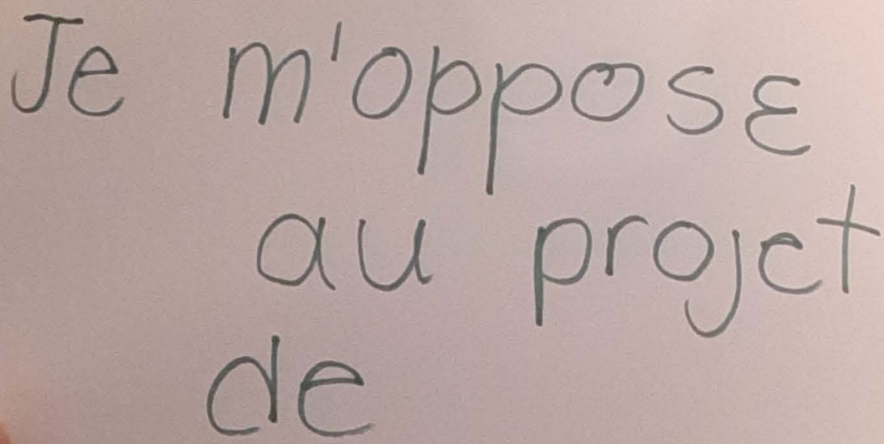 Je m'oppose
au projet
de